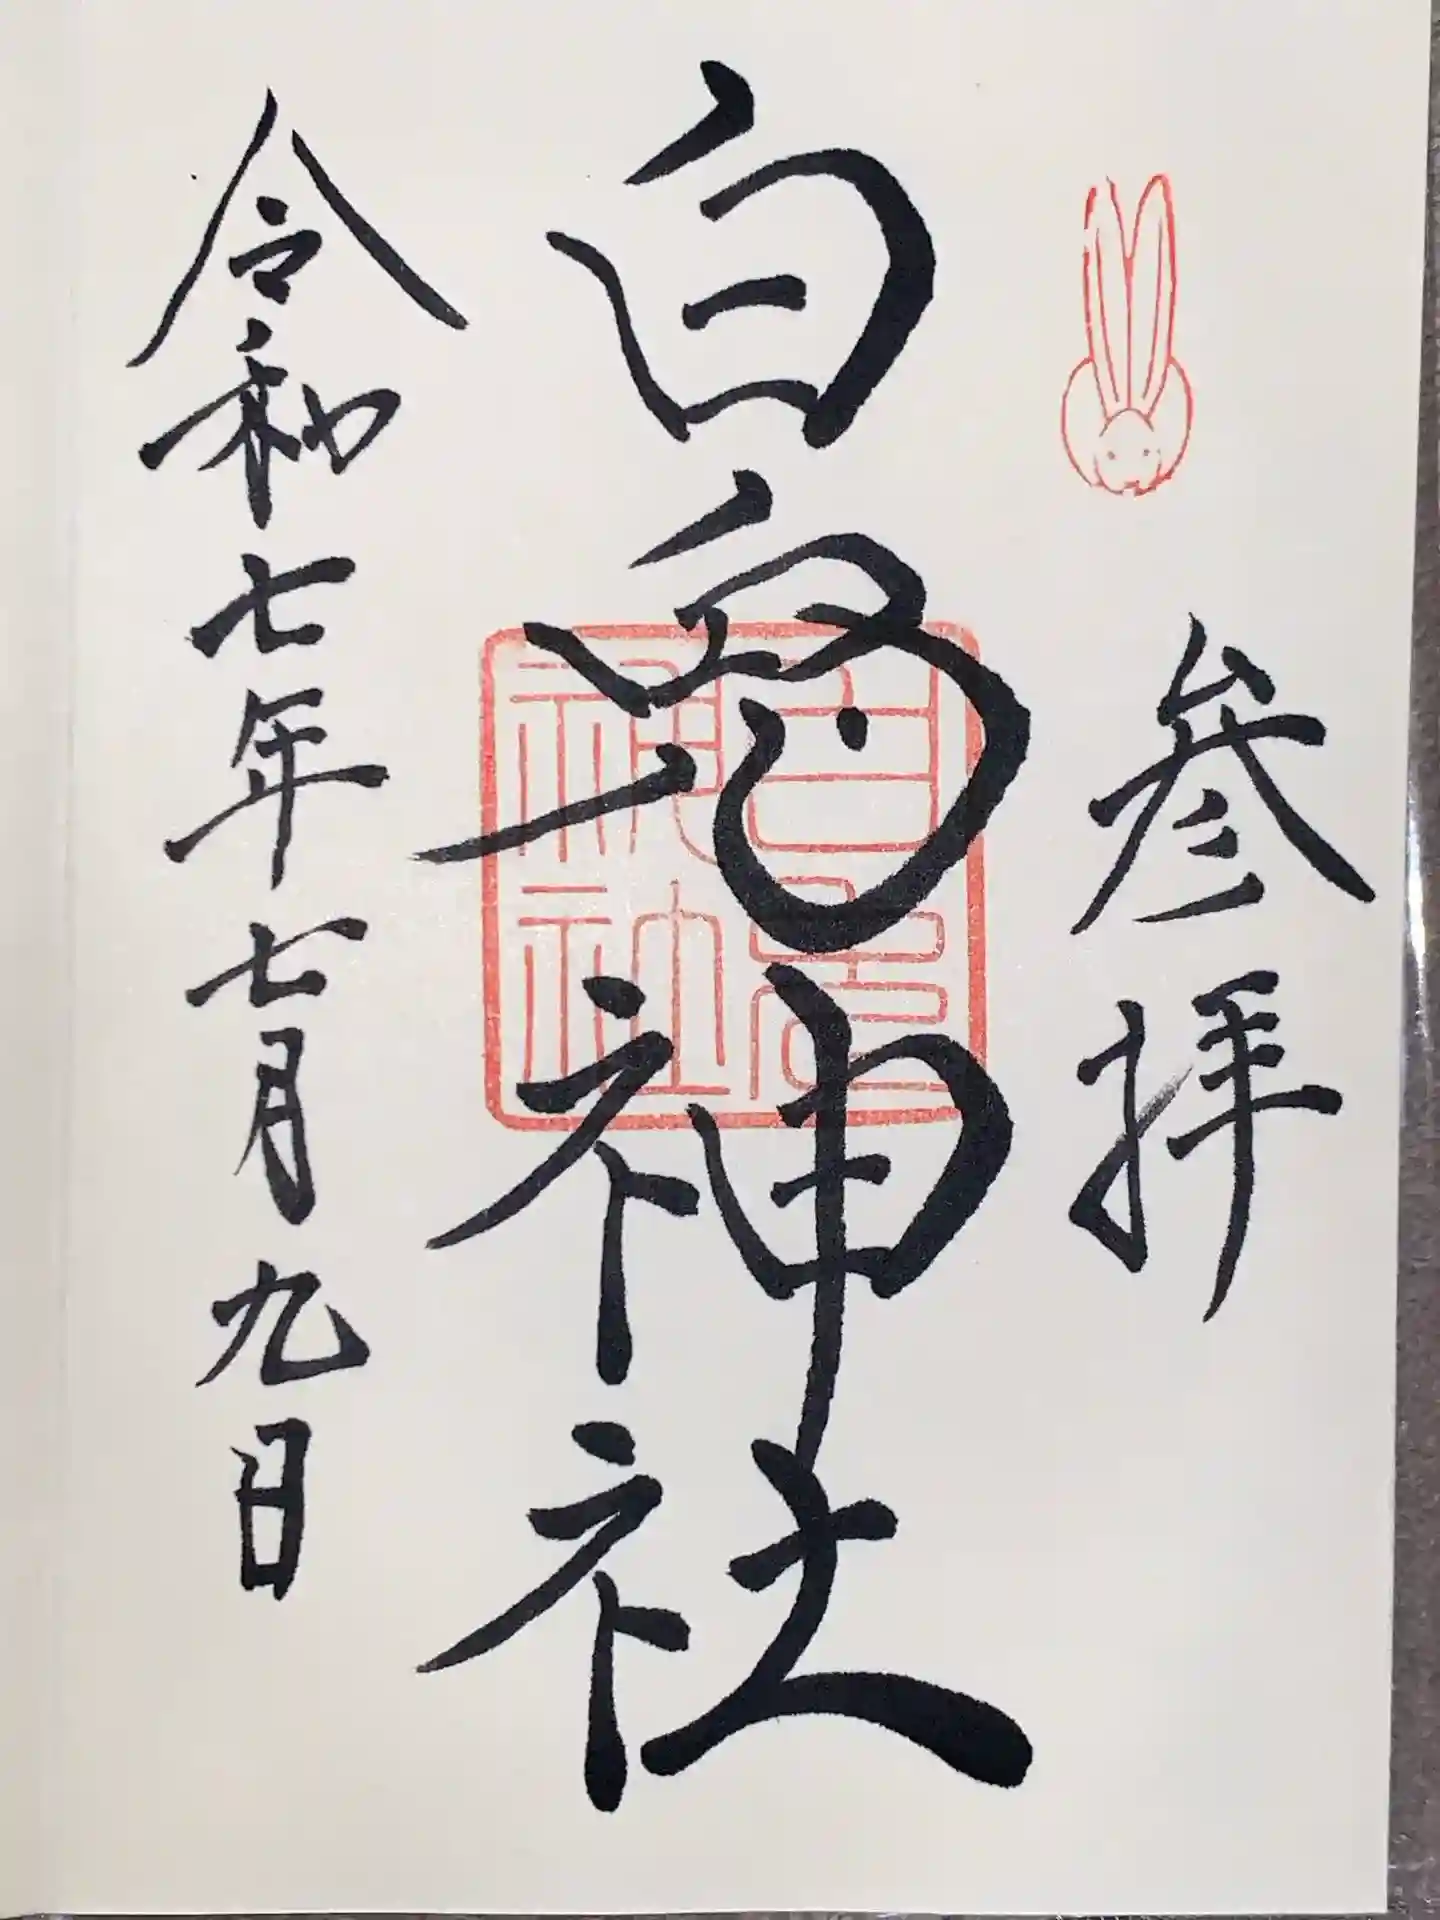 参拝
白兎神社
令和七年七月九日
白兎
神社